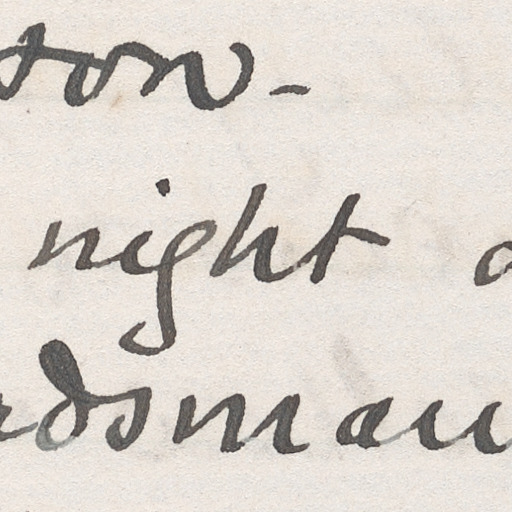 sow-
night a
dsman